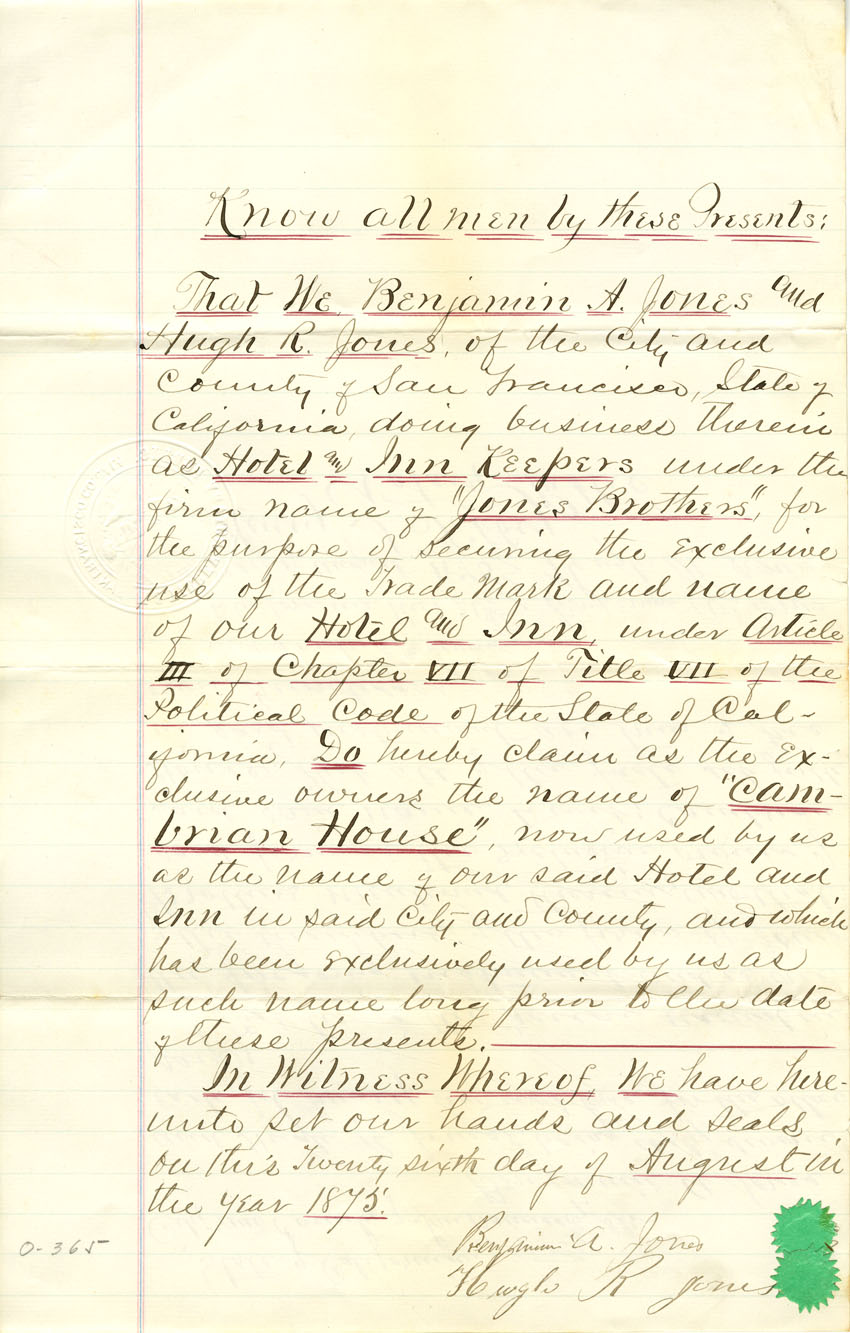 Know all men by these Presents:
That We, Benjamin A. Jones and
Hugh R. Jones, of the City and
County of San Francisco, State of
California, doing business therein
as Hotel and Inn Keepers under the
firm name of "Jones Brothers", for
the purpose of securing the exclusive
use of the Trade Mark and name
of our Hotel and Inn, under Article
III of Chapter VII of Title VII of the
Political Code of the State of Cal-
ifornia, Do hereby claim as the Ex-
clusive owners the name of "Cam-
brian House", now used by us
as the name of our said Hotel and
Inn in said City and County, and which
has been exclusively used by us as
such name long prior to the date
of these presents.
In Witness Whereof, We have here-
unto set our hands and seals
on this Twenty sixth day of August in
the year 1875.
Benjamin A. Jones
O-365
Hugh R Jones